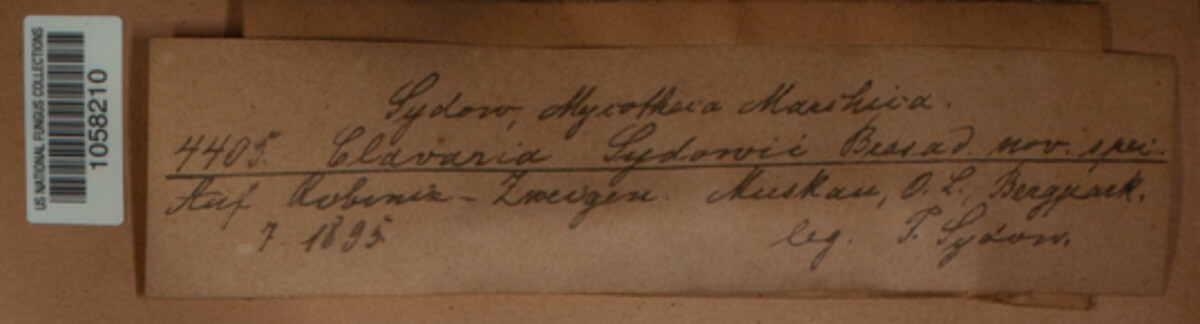 US NATIONAL FUNGUS COLLECTIONS
1058210
Sydow, Mycotheca Marchica.
4405. Clavaria Sydowii Bresad. nov. spei.
Auf Robinia-Zweigen. Muskau, O.L., Bergpark.
7. 1895. leg. P. Sydow.